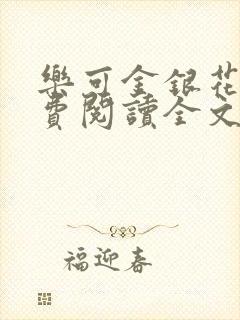 樂可金銀花
費閱讀全文
福迎春